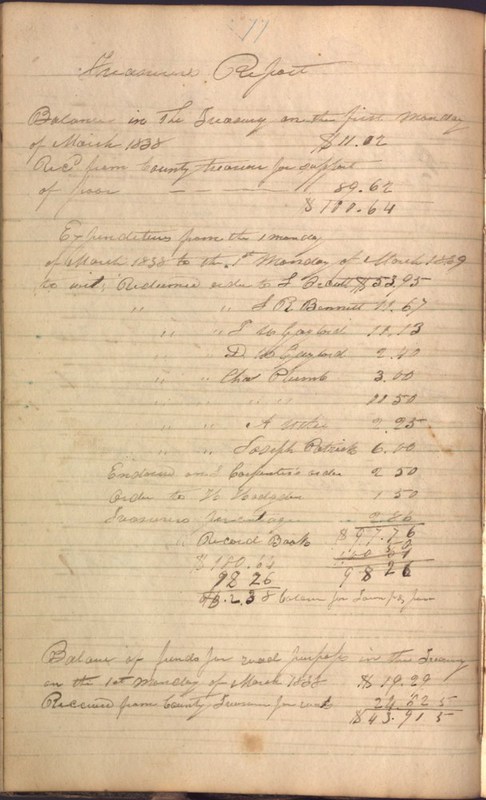 77
Treasurers Report
Balance in The Treasury on the first Monday
of March 1838 $11.02
Recd from County treasurer for support
of poor — — 89.62
$100.64
Expenditures from the 1 monday
of March 1838 to the 1st Monday of March 1839
to wit, Redeemed order to $53.95
" " Bennett 11.67
" " Gaylord 11.13
" " Gaylord 2.40
" " Chas Plumb 3.00
" " " " 11 50
" " A 2.25
" " Joseph Patrick 6.00
Endorsed on Carpenters order 2 50
Order to 1 50
Treasurers percentage 2.86
Record Book $97.76
$100.64
98 26 98 26
$2.38 balance for
Balance of funds for road purposes in the Treasury
on the 1st Monday of March 1838 $19.29
Received from County Treasurer for road 24 62 5
$43.91 5